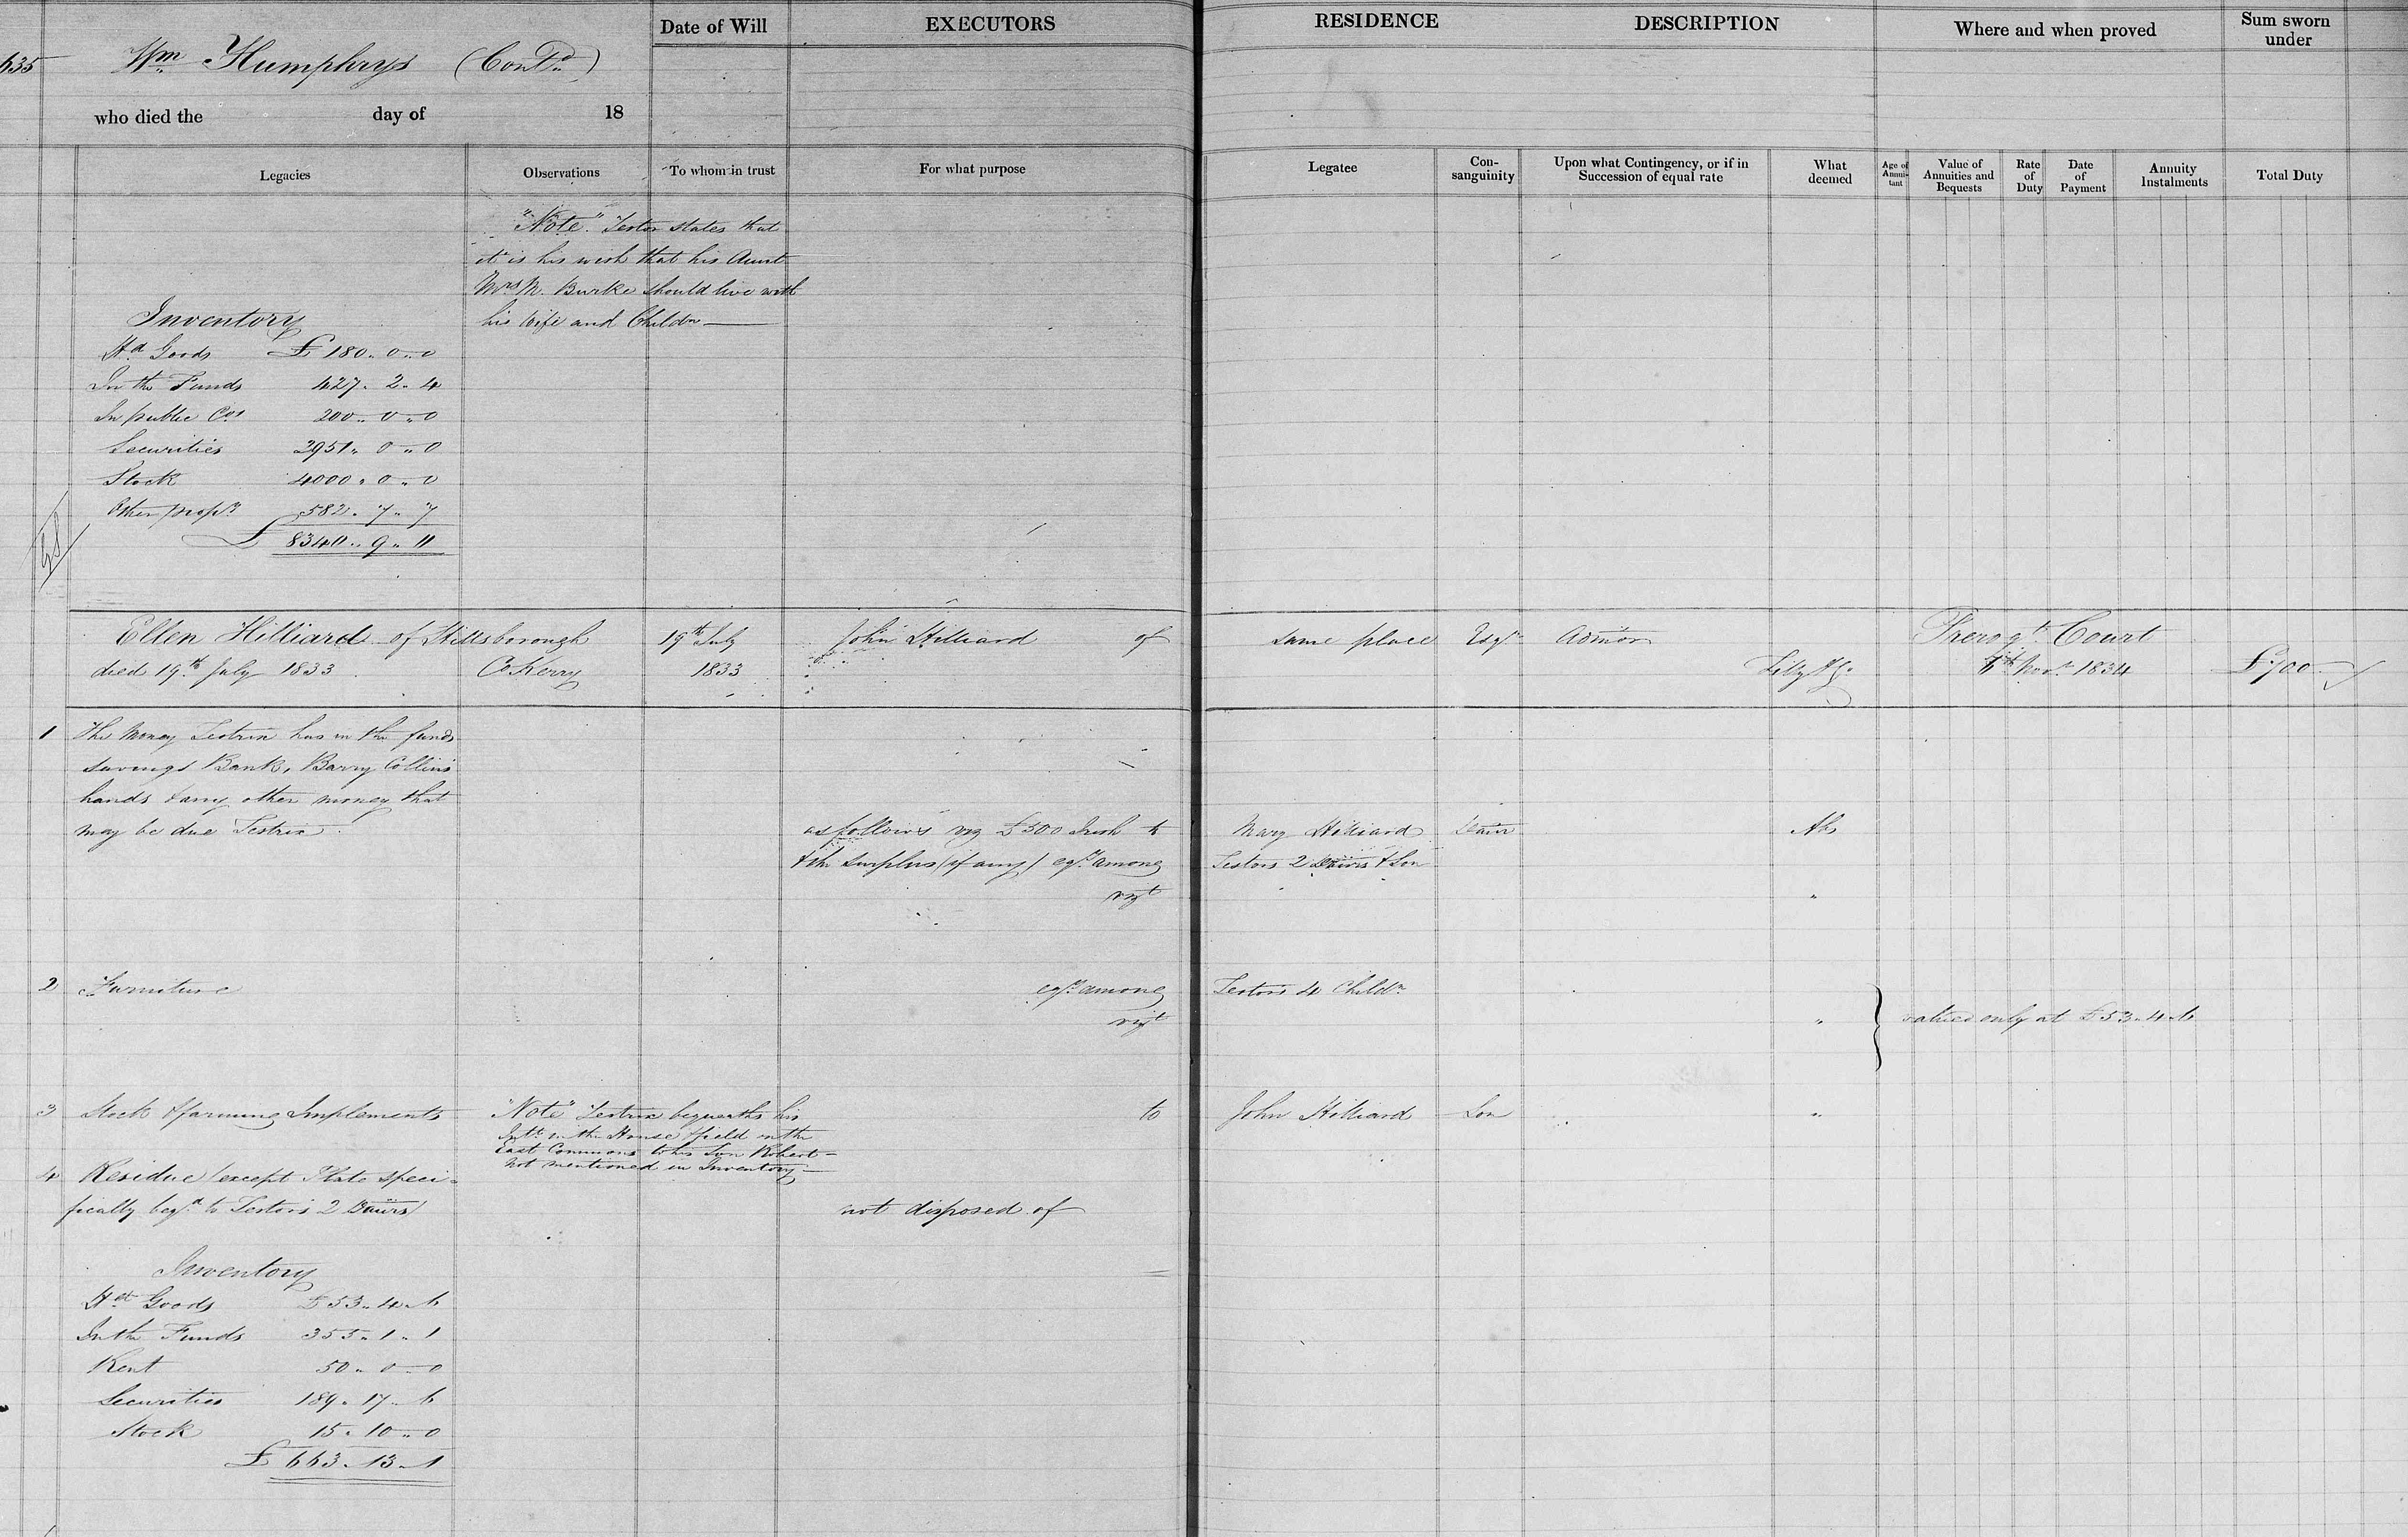 635
Wm Humphrys (Contd)
who died the day of 18
Date of Will
EXECUTORS
RESIDENCE
DESCRIPTION
Where and when proved
Sum sworn under
Legacies
Observations
To whom in trust
For what purpose
Legatee
Con-
sanguinity
Upon what Contingency, or if in
Succession of equal rate
What
deemed
Age of
Annui-
tant
Value of
Annuities and
Bequests
Rate
of
Duty
Date
of
Payment
Annuity
Instalments
Total Duty
"Note" Testor states that
it is his wish that his Aunt
Mrs M. Burke should live with
his Wife and Childn
Inventory
Hd Goods £180. 0. 0
In the Funds 427. 2. 4
In public Cos 200. 0. 0
Securities 2951. 0. 0
Stock 4000. 0. 0
Other propy 582. 7. 7
£ 8340. 9. 11
Ellen Hilliard of Hillsborough
died 19th July 1833 Co Kerry
19th July
1833
John Hilliard of
same place Esqr Admor
Prerogte Court
Novr 1834
£700
1 The Money Testrix has in the funds
Savings Bank, Barry Collins
hands & any other money that
may be due Testrix
as follows viz £500 Irish to
Mary Hilliard Daur
& the surplus (if any) eqy among
Testors 2 Daurs & Son
vizt
2 Furniture
eqy among
Testors 4 Childn
vizt
valued only at £53. 4. 6
3 Stock & farming Implements
"Note" Testrix bequeaths his
Intt in the House & field on the
East Commons to his Son Robert
not mentioned in Inventory
to
John Hilliard Son
4 Residue (except Plate speci-
fically beqd to Testors 2 Daurs)
not disposed of
Inventory
Hd Goods £53. 4. 6
In the Funds 355. 1. 1
Rent 50. 0. 0
Securities 189. 17. 6
Stock 15. 10. 0
£663. 13. 1